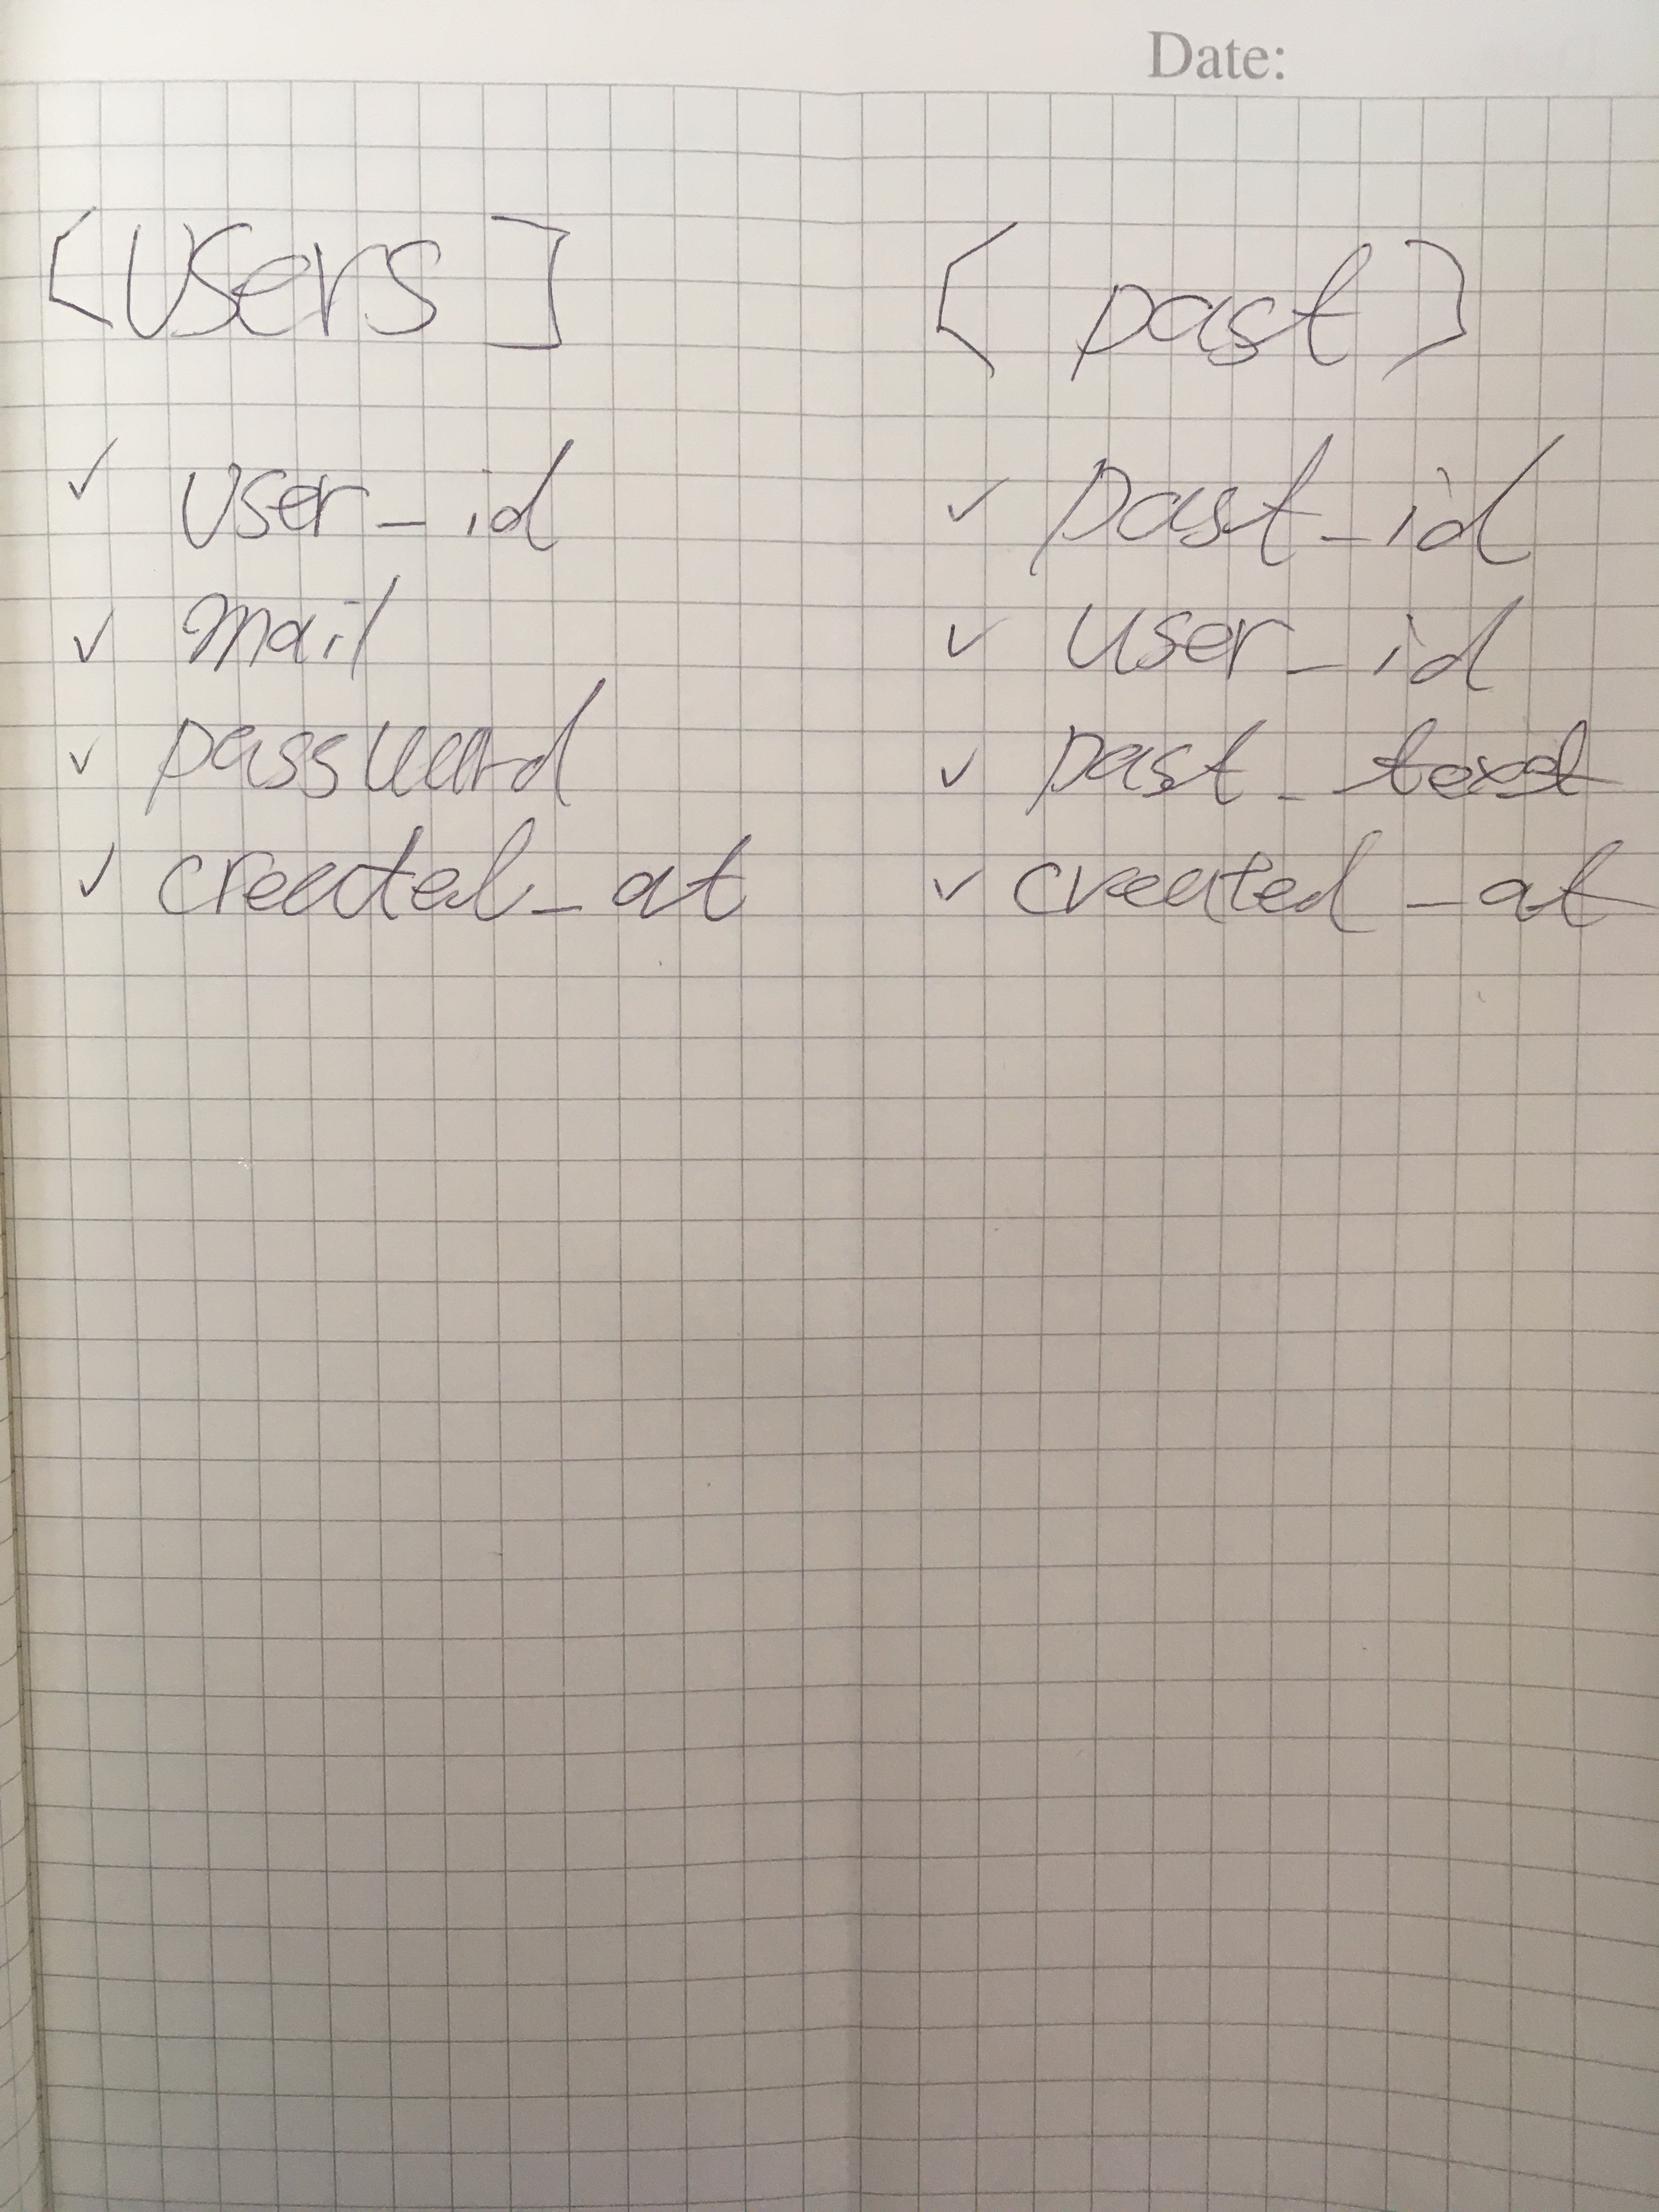 Date:
[users]
✓ user_id
✓ mail
✓ password
✓ created_at
[past]
✓ past_id
✓ user_id
✓ past_text
✓ created_at